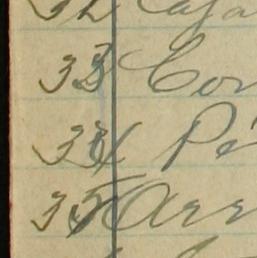 32
33 Cor
34 Pe
35 Arr